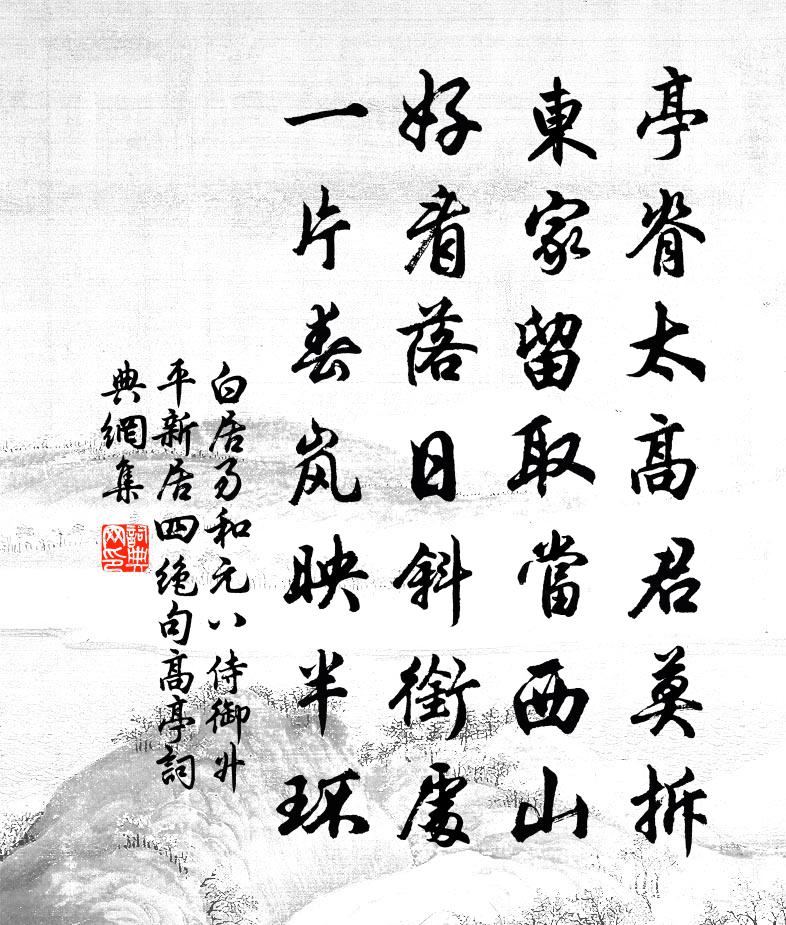 亭脊太高君莫拆
東家留取當西山
好看落日斜銜處
一片春嵐映半環
白居易和元八侍御升
平新居四絶句高亭詞
典網集
詞典網印